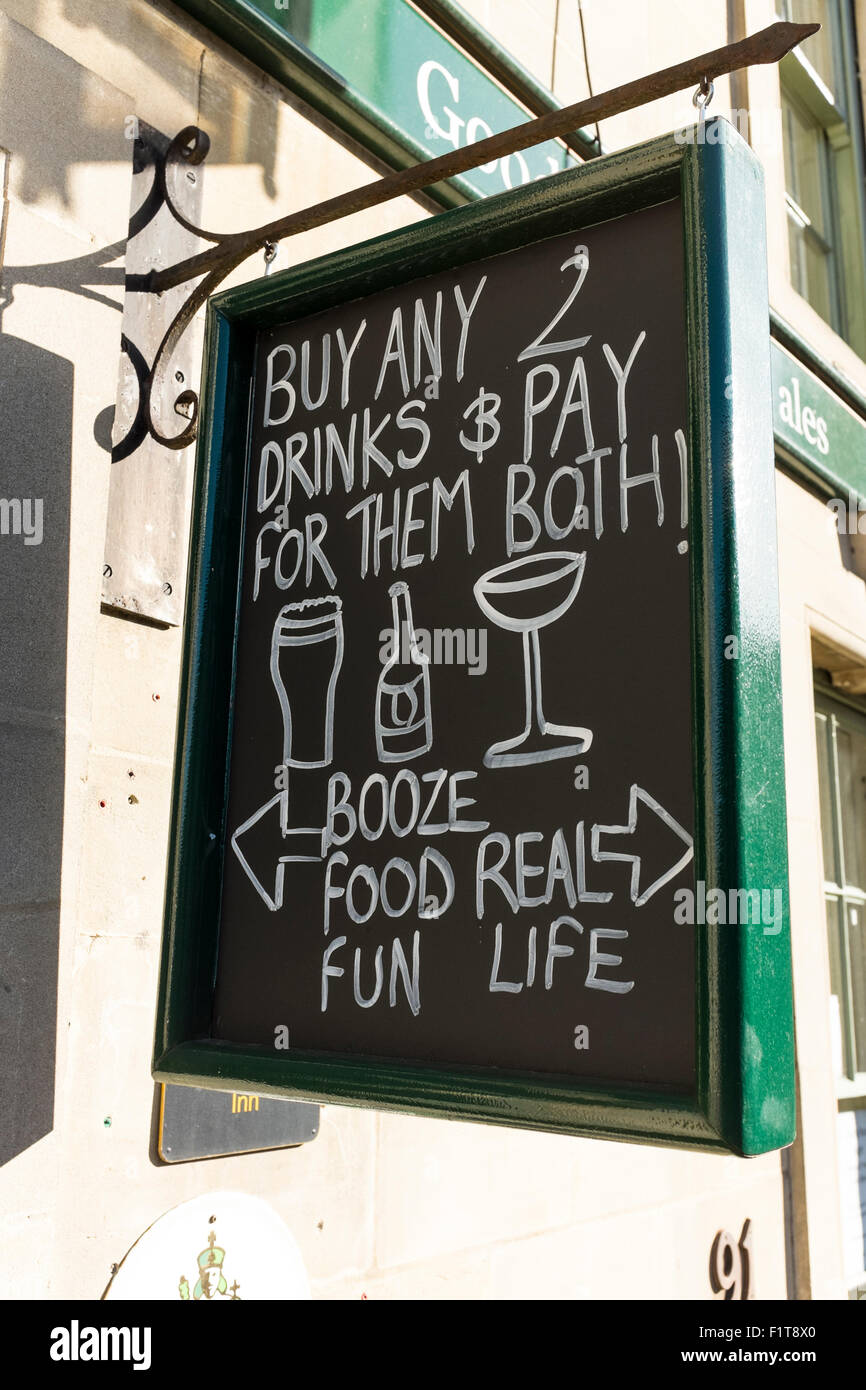 Good
ales
BUY ANY 2
DRINKS & PAY
FOR THEM BOTH!
BOOZE
FOOD REAL
FUN LIFE
Inn
91
alamy
Image ID: F1T8X0
www.alamy.com